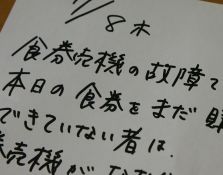 7/8 木
食券売機の故障で
本日の食券をまだ購
できていない者は、
券売機が